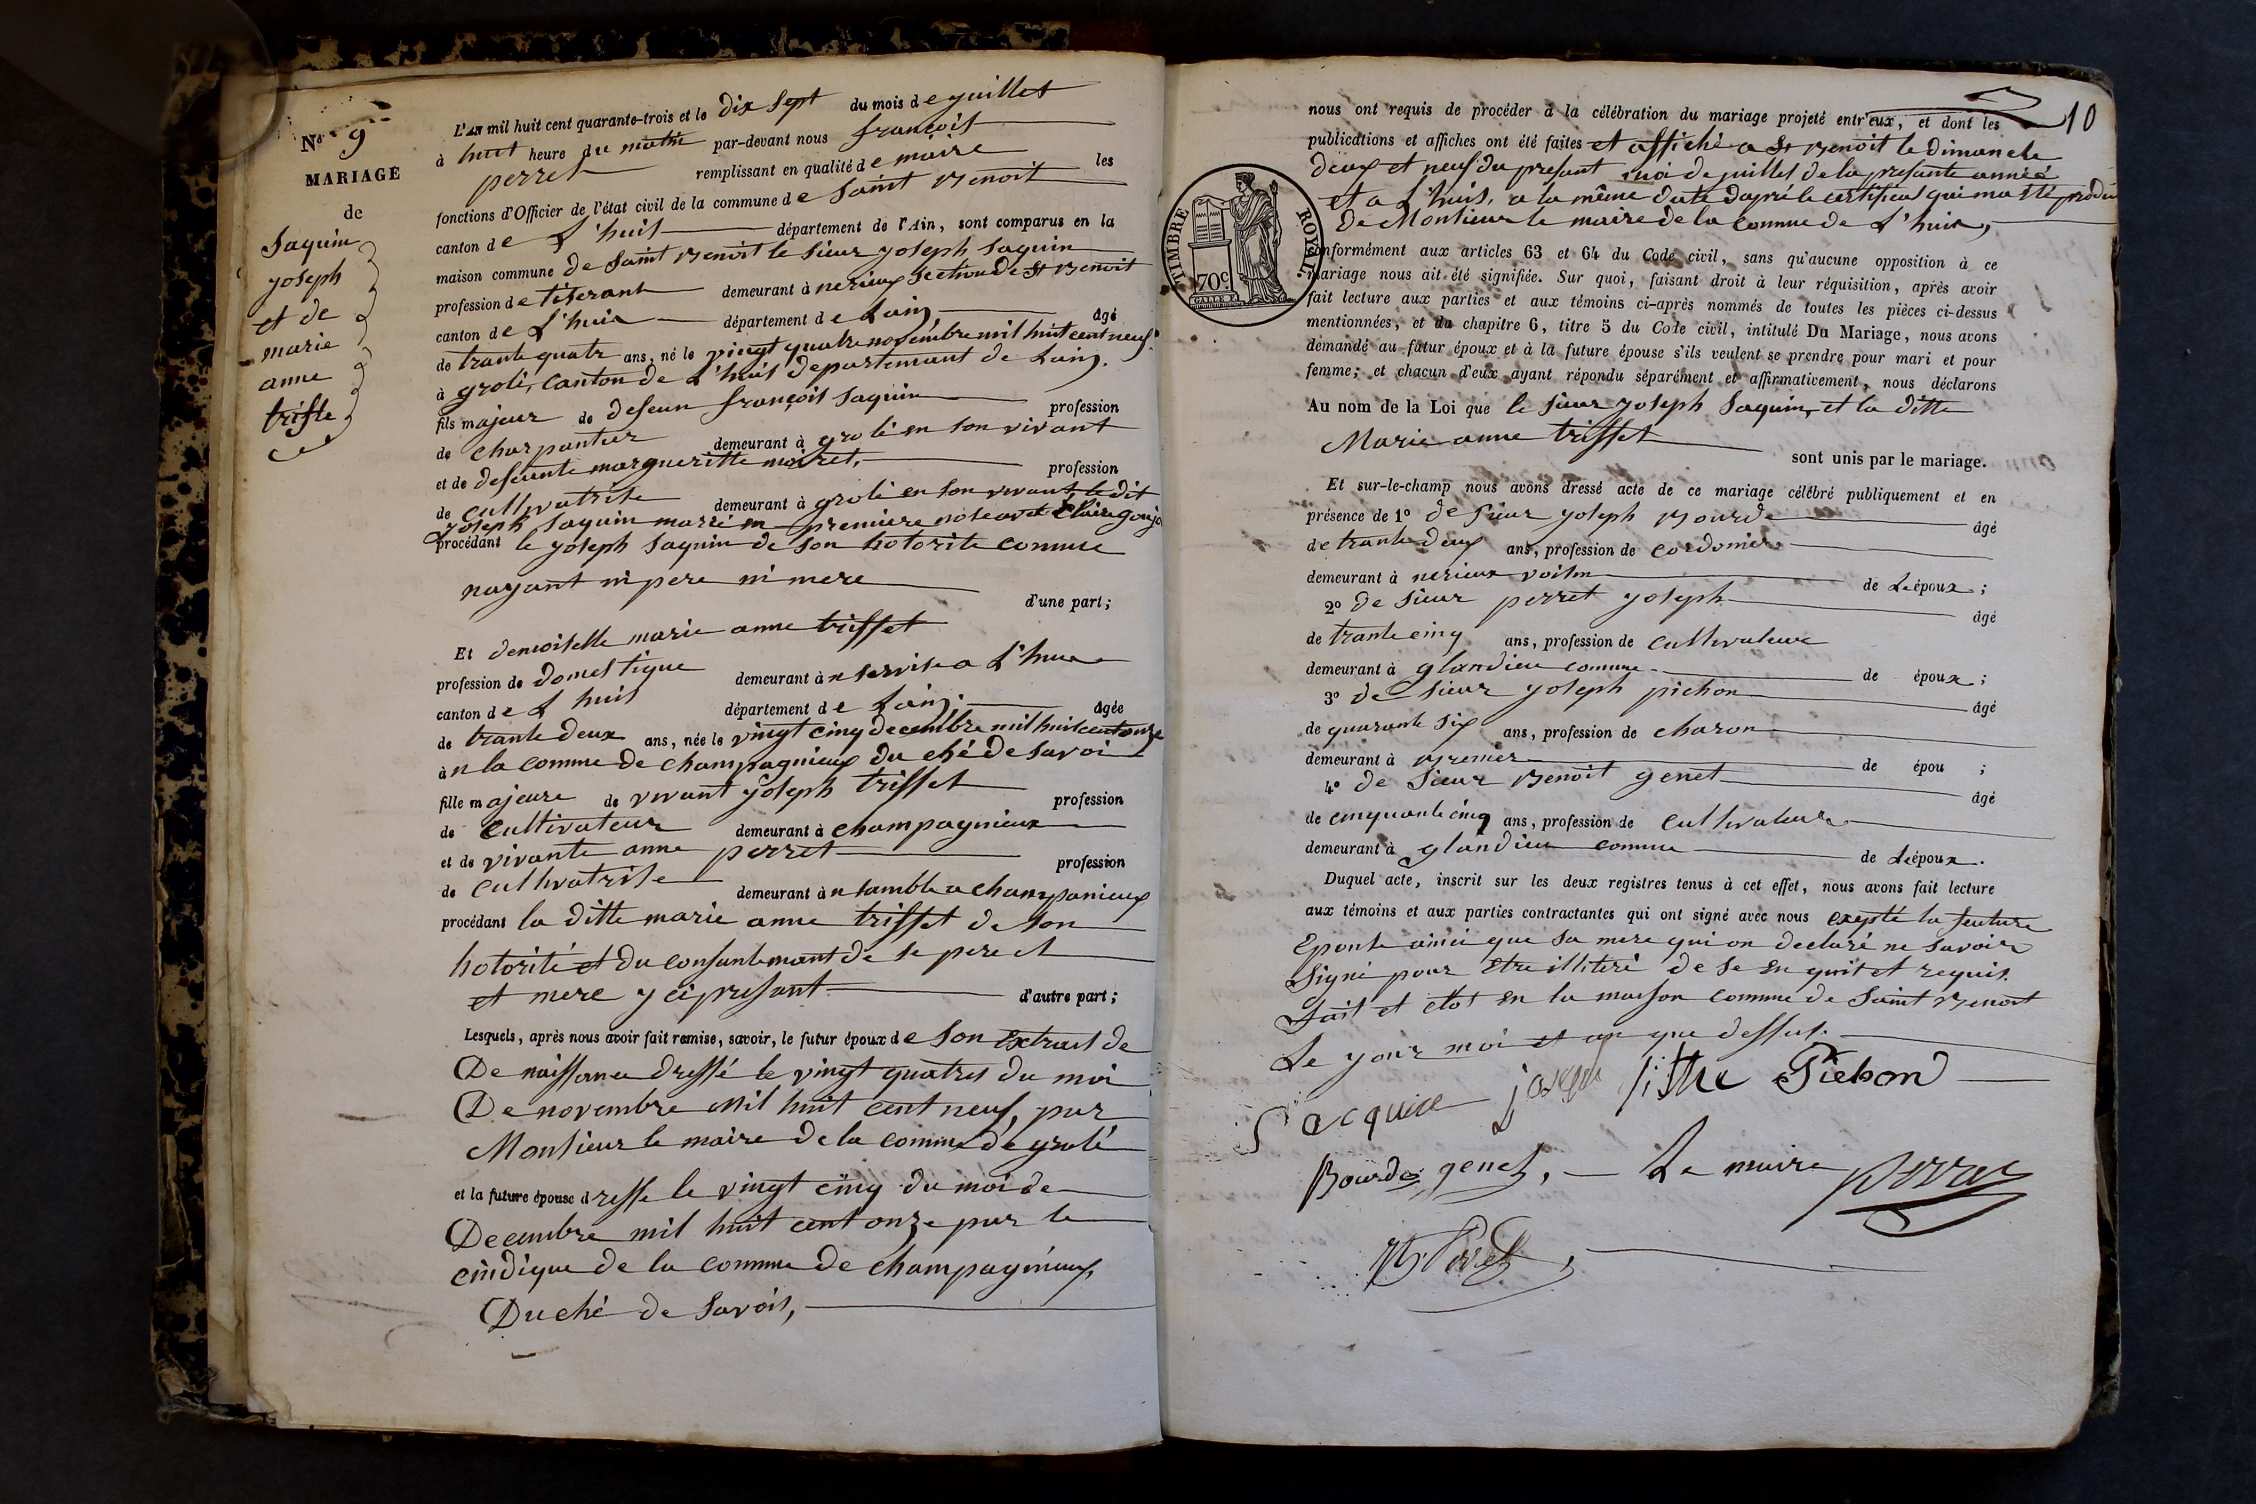 N° 9
MARIAGE
de
Saquin
yoseph
et de
marie
anne
triste
L'AN mil huit cent quarante-trois et le dix sept du mois de yuillet
à huit heure du matin par-devant nous françois
perret remplissant en qualité de maire les
fonctions d'Officier de l'état civil de la commune de Saint Benoit
canton de L'huis département de l'Ain, sont comparus en la
maison commune de Saint Benoit le Sieur yoseph Saquin
profession de tiserant demeurant à nerieux Section de St Benoit
canton de L'huis département de Lain, âgé
de trante quatr ans, né le vingt quatre novembre mil huit cent neuf
à groli, canton de L'huis departemant de Lain.
fils majeur de defeun françois Saquin profession
de charpantier demeurant à groli en son vivant
et de defeunte margueritte moiret, profession
de cultivatrise demeurant à groli en son vivant le dit
yoseph Saquin marié en premiere nose avec Claire
procédant le yoseph Saquin de son hotorite comme
nayant ni pere ni mere
d'une part;
Et demoiselle marie anne trisset
profession de domestique demeurant à n servise a L'huis
canton de L'huis département de Lain, âgée
de trante deux ans, née le vingt cinq decembre mil huit cent onze
à n la comme de champagnieux du ché de Savoi
fille majeure de vivant yoseph trisset profession
de cultivateur demeurant à champagnieux
et de vivante anne perret profession
de cultivatrise demeurant à n samble a champanieux
procédant la ditte marie anne trisset de son
hotorité et du consantemant de se pere et
et mere y ci presant d'autre part;
Lesquels, après nous avoir fait remise, savoir, le futur époux de son extrait de
De naissance dressé le vingt quatres du moi
De novembre mil huit cent neuf, par
Monsieur le maire de la comme de groli
et la future épouse dresse le vingt cinq du moi de
Decembre mil huit cent onze par le
cindique de la comme de champagnieux,
Duché de Savois,
10
nous ont requis de procéder à la célébration du mariage projeté entr'eux, et dont les
publications et affiches ont été faites et affiché a St Benoit le dimanche
deux et neuf du presant moi de yuillet de la presante anneé
et a L'huis, a la même date dapré le certificat qui ma été produi
De Monsieur le maire de la comme de L'huis,
conformément aux articles 63 et 64 du Code civil, sans qu'aucune opposition à ce
mariage nous ait été signifiée. Sur quoi, faisant droit à leur réquisition, après avoir
fait lecture aux parties et aux témoins ci-après nommés de toutes les pièces ci-dessus
mentionnées, et du chapitre 6, titre 5 du Code civil, intitulé Du Mariage, nous avons
demandé au futur époux et à la future épouse s'ils veulent se prendre pour mari et pour
femme; et chacun d'eux ayant répondu séparément et affirmativement, nous déclarons
Au nom de la Loi que le Sieur yoseph Saquin, et la ditte
Marie anne trisset
sont unis par le mariage.
Et sur-le-champ nous avons dressé acte de ce mariage célébré publiquement et en
présence de 1° de Sieur yoseph Bourde âgé
de trante deux ans, profession de cordonier
demeurant à nerieux voisin de Le époux;
2° de Sieur perret yoseph âgé
de trante cinq ans, profession de cultivateur
demeurant à glandieu comme de époux;
3° de Sieur yoseph pichon âgé
de quarante Six ans, profession de charon
demeurant à Bremier de épou ;
4° de Sieur Benoit genet âgé
de cinquante cinq ans, profession de cultivateur
demeurant à glandieu comme de Le époux.
Duquel acte, inscrit sur les deux registres tenus à cet effet, nous avons fait lecture
aux témoins et aux parties contractantes qui ont signé avec nous exepté la feuture
Epouse ainci que sa mere qui on declaré ne savoir
Signé pour etre illiteré de se en quit et requis.
Fait et clos en la maison comme de Saint Benoit
Le your moi et an que dessus.
Sacquin joseph Pichon
Bourde, genet, Le maire perret
TIMBRE ROYAL
70c